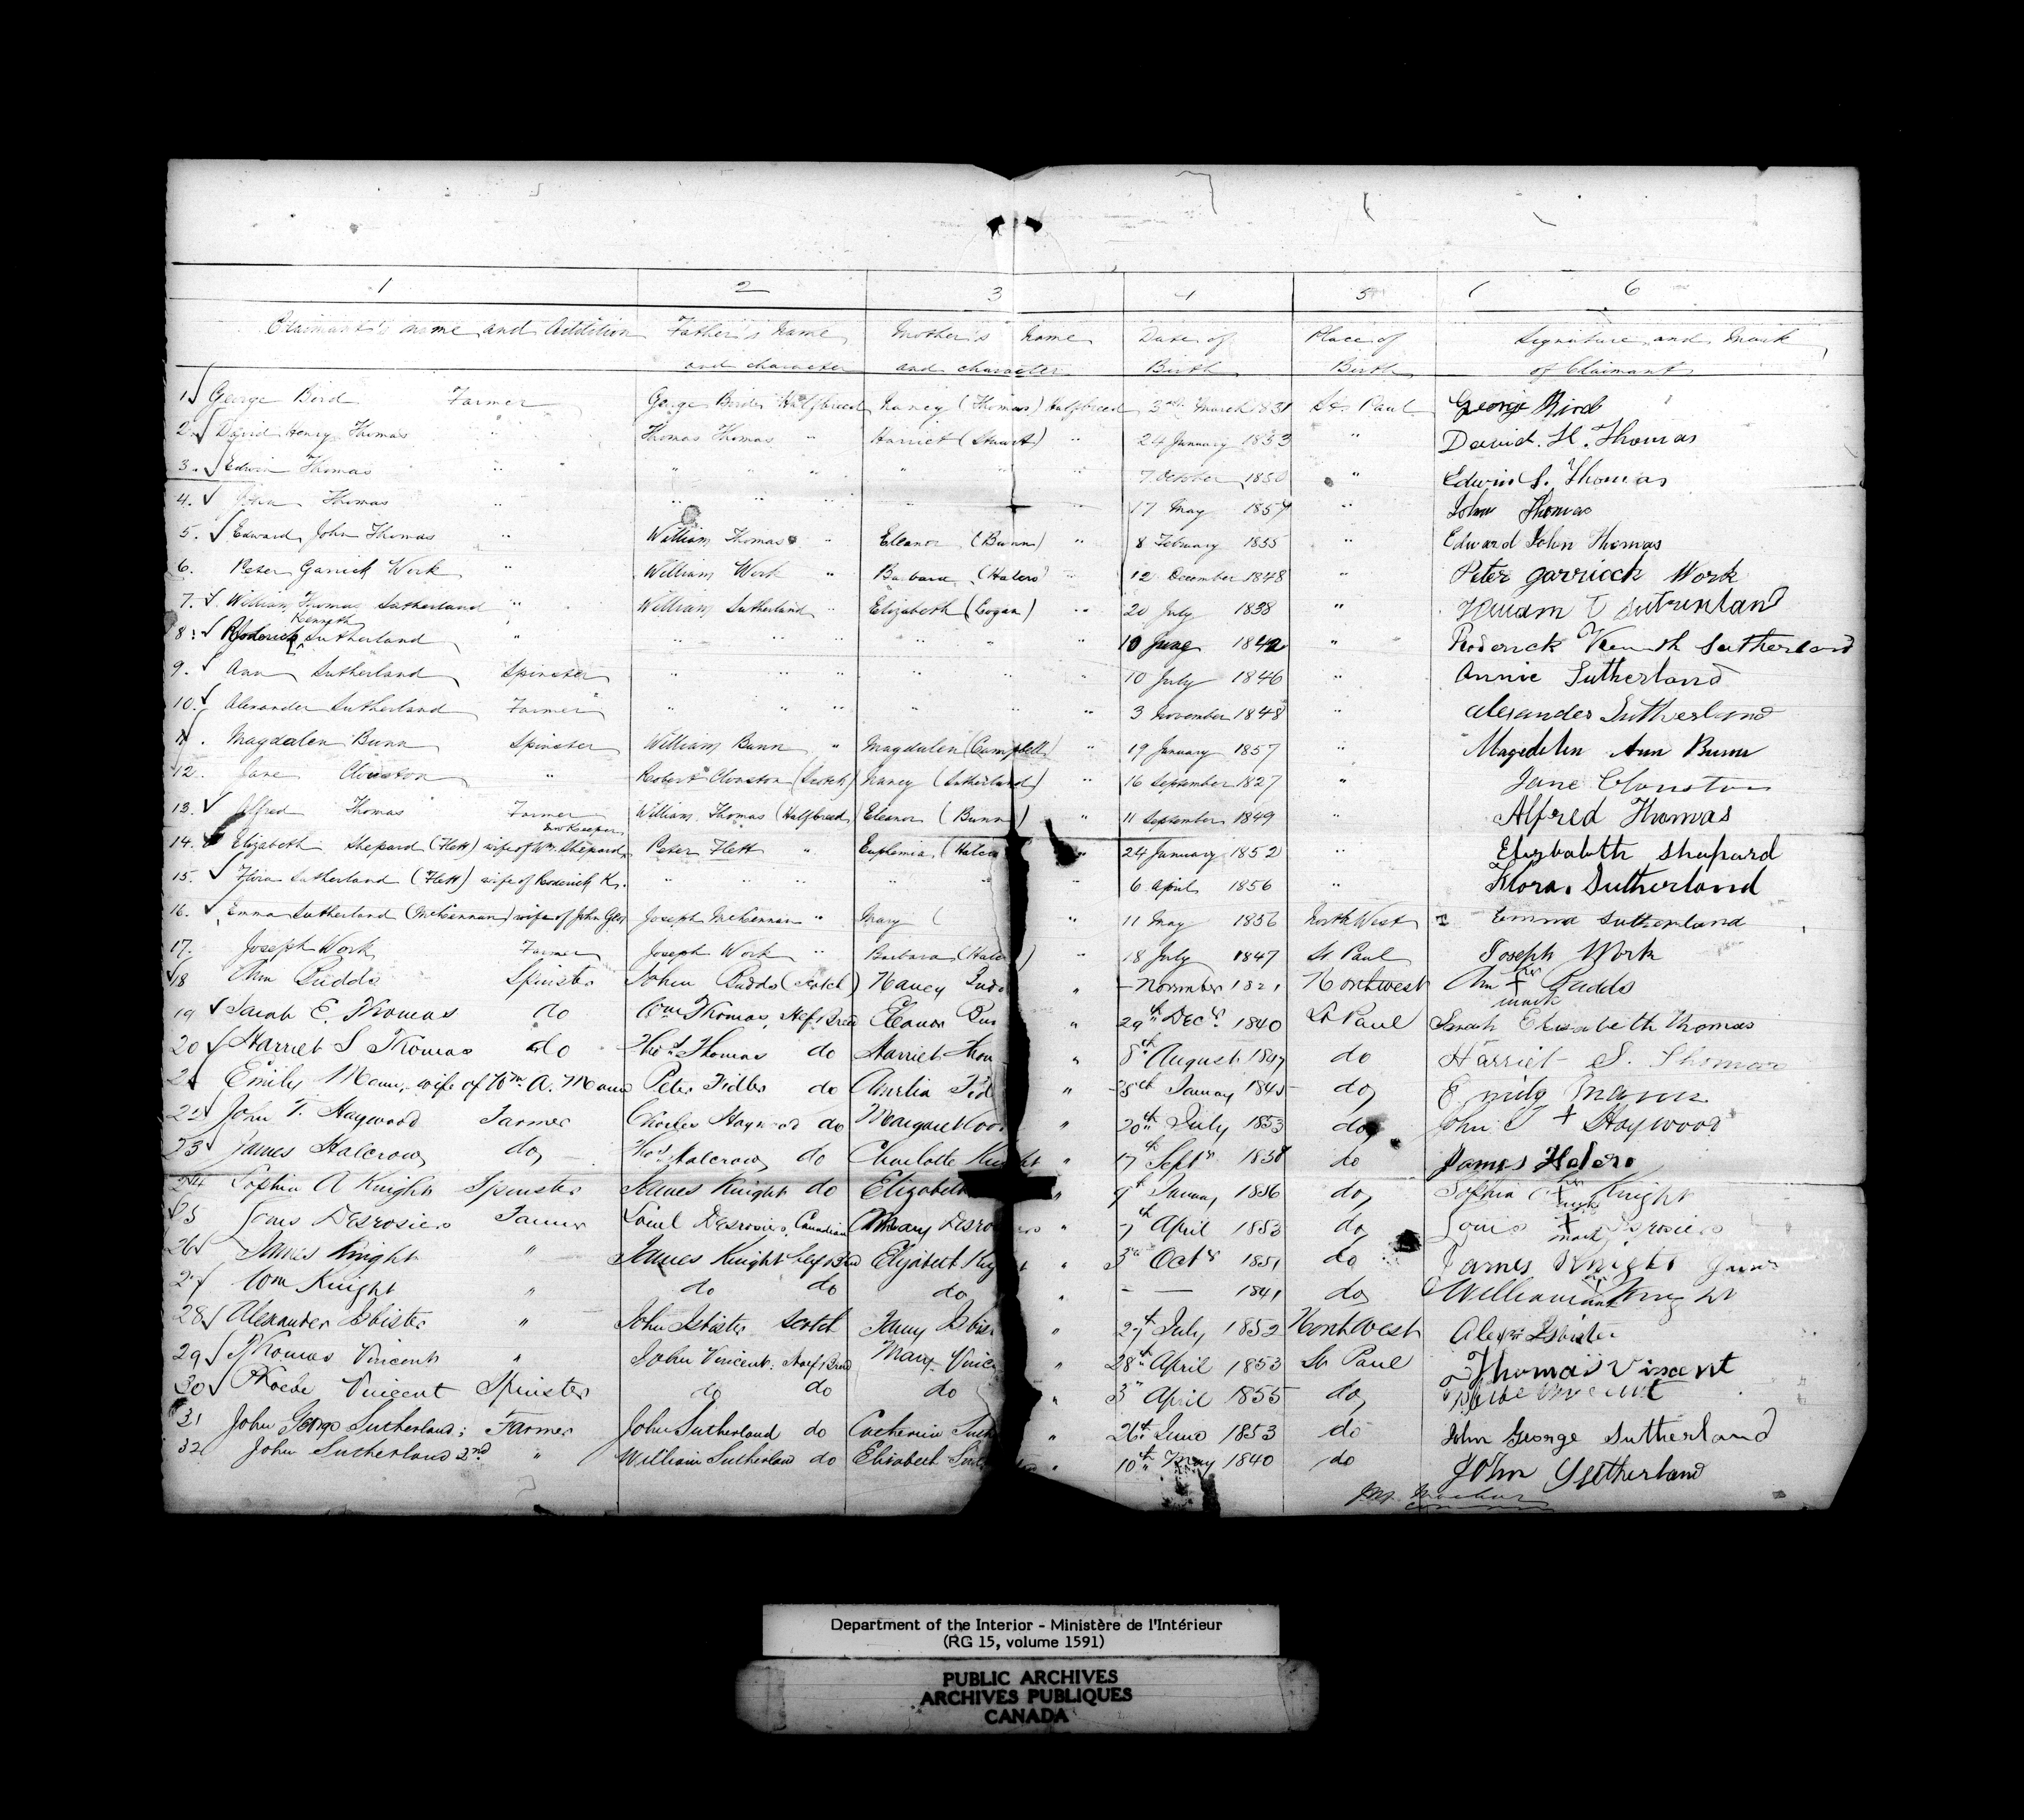 1 2 3 4 5 6
Claimant's name and Addition Father's Name Mother's Name Date of Place of Signature and Mark
and character and character Birth Birth of Claimant
1 George Bird Farmer George Bird Halfbreed Nancy (Thomas) Halfbreed 3rd March 1831 St. Paul George Bird
2. David Henry Thomas " Thomas Thomas " Harriet (Stuart) " 24 January 1853 " David. H. Thomas
3. Edwin Thomas " " " " " " " 7 October 1850 " Edwin S. Thomas
4. John Thomas " " " " " " 17 May 1857 " John Thomas
5. Edward John Thomas " William Thomas " Eleanor (Bunn) " 8 February 1855 " Edward John Thomas
6. Peter Garrick Work " William Work " Barbara " 12 December 1848 " Peter Garriock Work
7. William Thomas Sutherland " William Sutherland " Elizabeth (Logan) " 20 July 1838 " William T Sutherland
Kenneth
8. Roderick Sutherland " " " " " " 10 June 1842 " Roderick Kenneth Sutherland
9. Ann Sutherland Spinster " " " " " " 10 July 1846 " Annie Sutherland
10. Alexander Sutherland Farmer " " " " " " 3 November 1848 " Alexander Sutherland
11. Magdalen Bunn Spinster William Bunn " Magdalen (Campbell) " 19 January 1857 " Magdelen Ann Bunn
12. Jane Clouston " Robert Clouston (Scotch) Nancy (Sutherland) " 16 September 1827 " Jane Clouston
13. Alfred Thomas Farmer William Thomas (Halfbreed) Eleanor (Bunn) " 11 September 1849 " Alfred Thomas
14. Elizabeth Shepard (Flett) wife of Wm. Shepard Peter Flett " Euphemia " 24 January 1852 " Elizbabeth Shepard
15. Flora Sutherland (Flett) wife of Roderick K. " " " " " " 6 April 1856 " Flora Sutherland
16. Emma Sutherland (McKennan) wife of John Geo Joseph McKennan " Mary ( " 11 May 1856 North West Emma Sutherland
17. Joseph Work Farmer Joseph Work " Barbara " 18 July 1847 St Paul Joseph Work
18 Ann Budds Spinster John Budds (Scotch) Nancy " - November 1821 Northwest Ann + Budds
her mark
19 Sarah E. Thomas do Wm Thomas, Half Breed Eleanor Bun " 29th Decr. 1840 St Paul Sarah Elisabeth Thomas
20 Harriet S Thomas do Thos Thomas do Harriet Thom " 8th August 1847 do Harriet S. Thomas
21 Emily Mann, wife of Wm. A. Mann Peter Fidler do Fid " January 1845 do Emily Mann
22 John T. Haywood Farmer Charles Haywood do Margaret " 20th July 1853 do John T + Haywood
23 James Halcrow do Thos Halcrow do Charlotte Knight " 17th Septr 1838 do James Halcro
24 Sophia A Knight Spinster James Knight do Elizabeth " 9th January 1856 do Sophia + Knight
her mark
25 Louis Desrosiers Farmer Desrosiers, Canadian Mary Desrosiers " 7th April 1853 do Louis + Desrosiers
mark
26 James Knight " James Knight Half Bred Elizabeth " 3rd Octr 1851 do James Knight
27 Wm Knight " do do do " - - 1841 do William Knight
28 Alexander Isbister " John Isbister Scotch Isbis " 27th July 1852 Northwest Alexr Isbister
29 Thomas Vincent " John Vincent, Half Breed Mary Vinc " 28th April 1853 St Paul Thomas Vincent
30 Phoebe Vincent Spinster do do do " 3rd April 1855 do Vincent
31 John George Sutherland; Farmer John Sutherland do Catherine Suth " 26th June 1853 do John George Sutherland
32 John Sutherland 2nd " William Sutherland do Elisabeth " 10th May 1840 do John Sutherland
Department of the Interior - Ministère de l'Intérieur
(RG 15, volume 1591)
PUBLIC ARCHIVES
ARCHIVES PUBLIQUES
CANADA